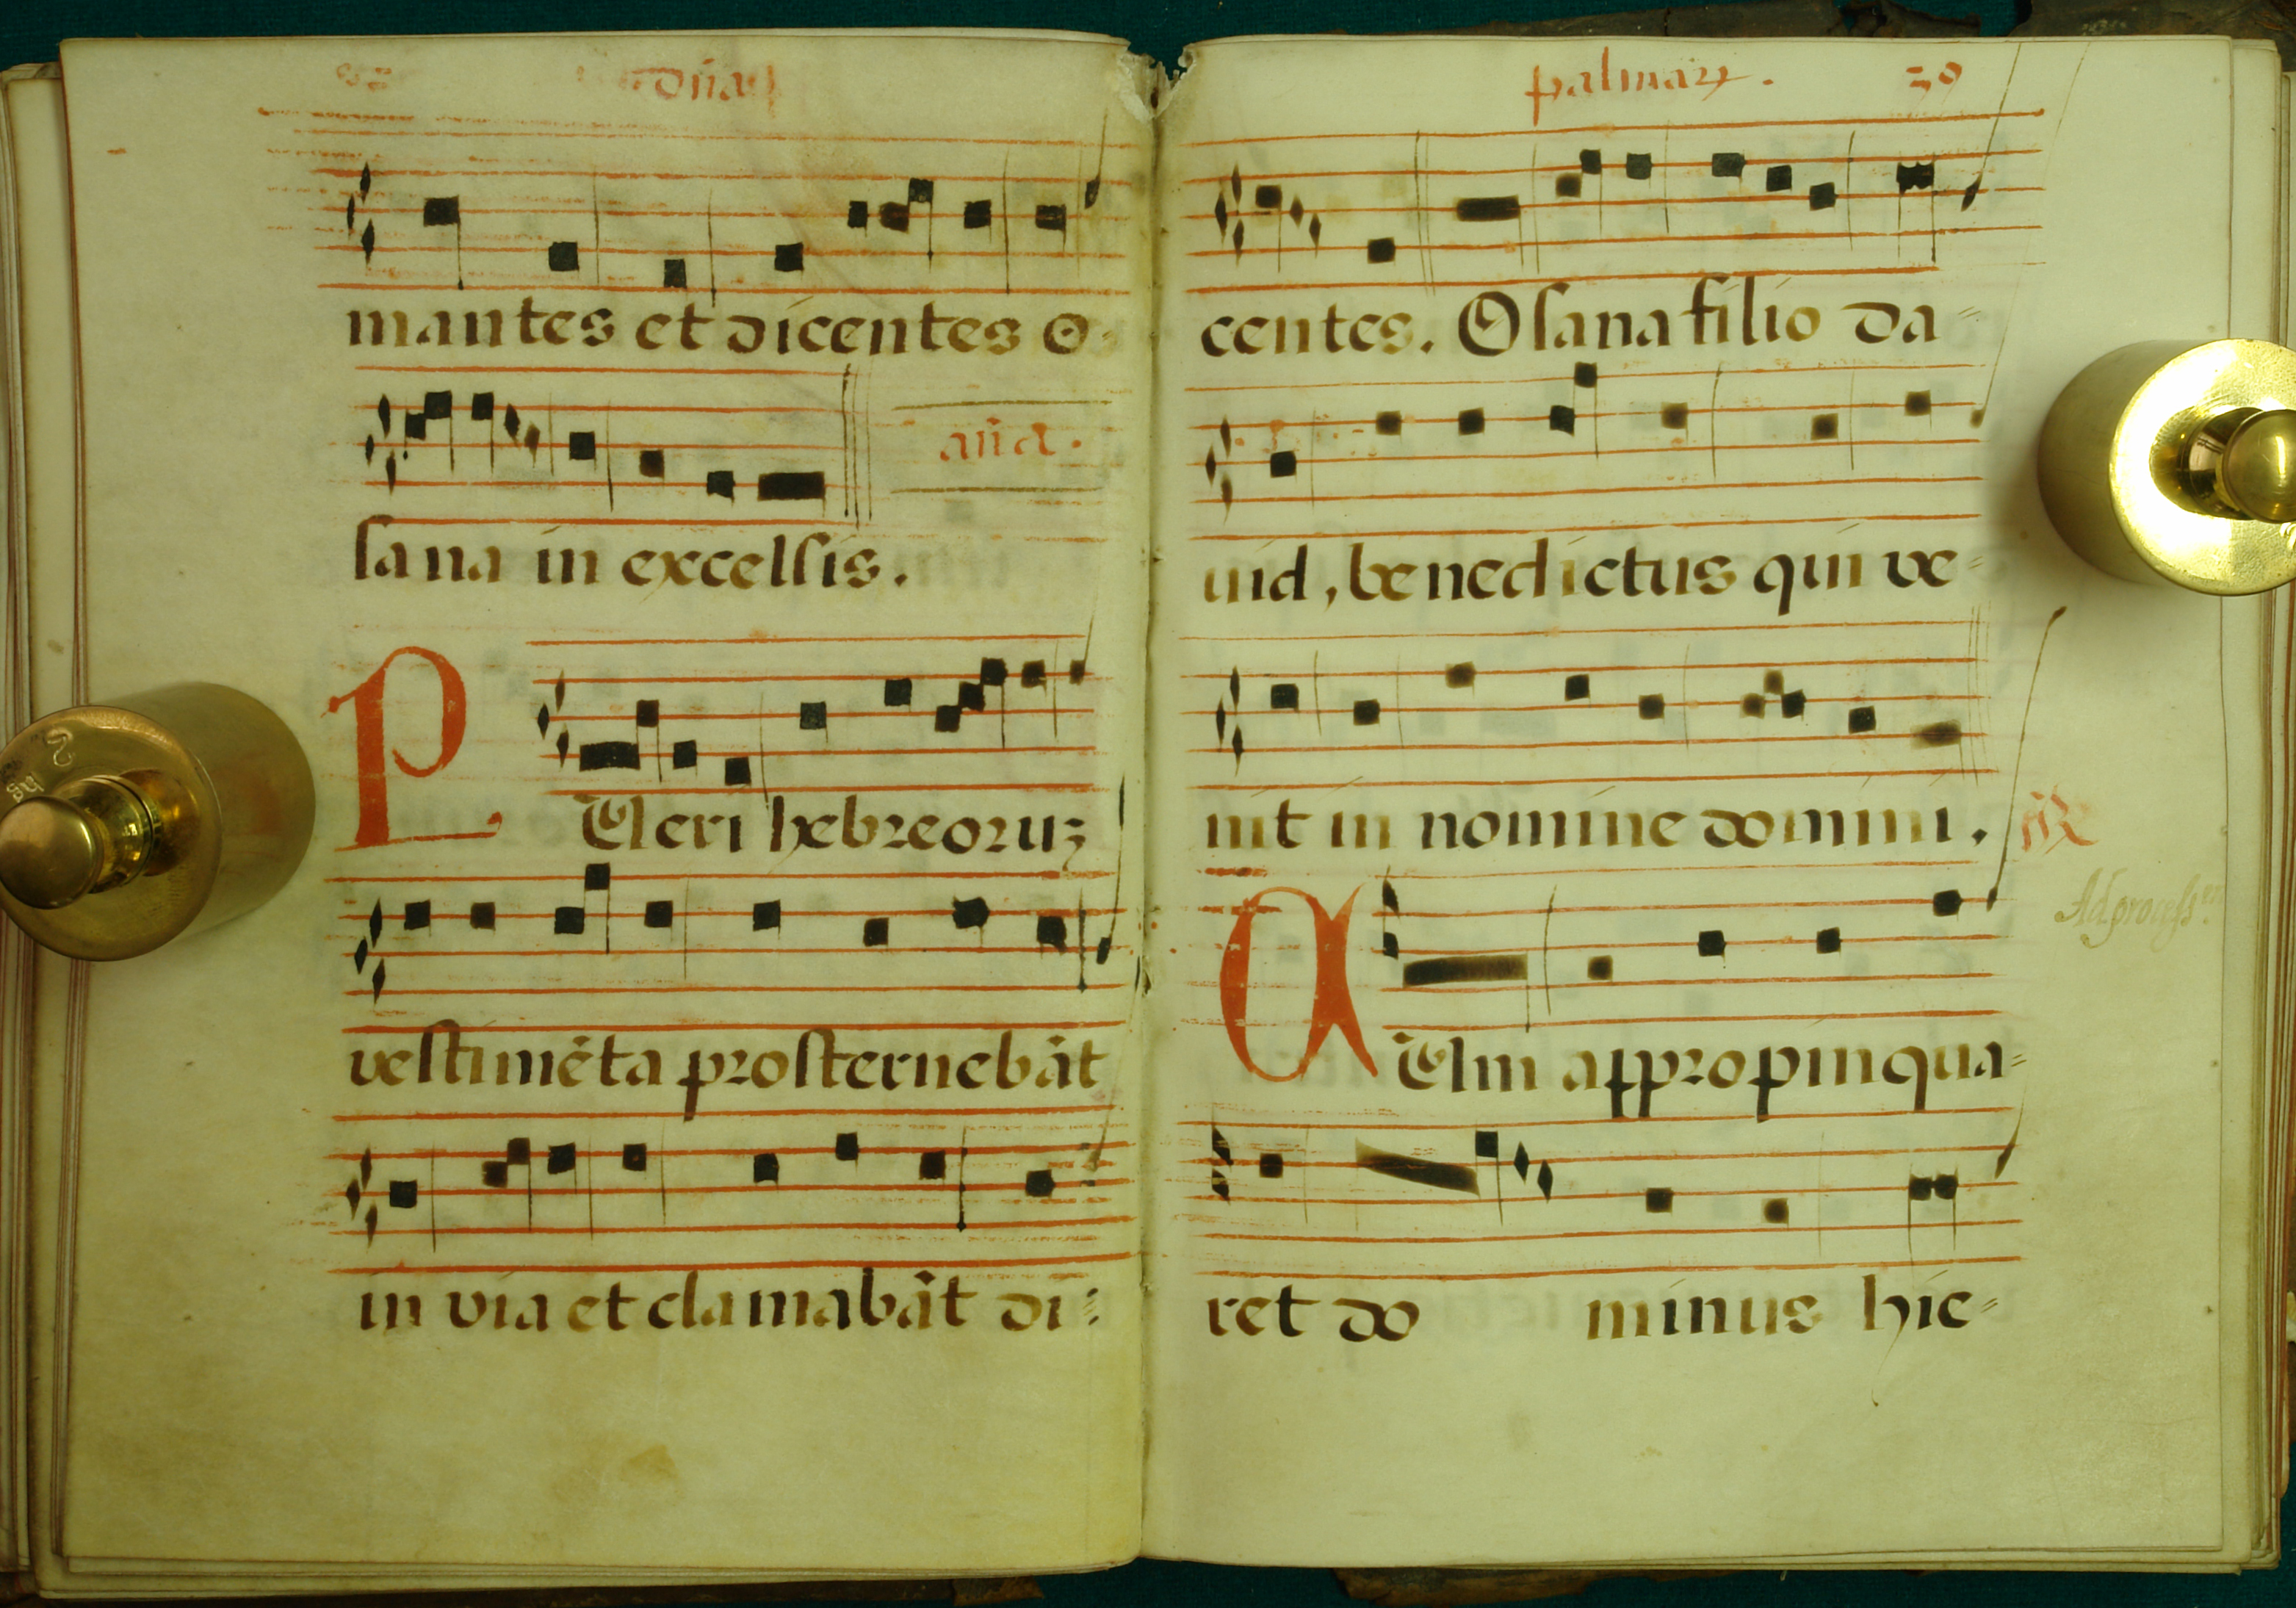 dñaʒ
mantes et dicentes o-
sana in excelsis.
aña.
P Ueri hebreoruʒ
vestimẽta prosternebãt
in via et clamabãt di-
palmaꝝ. 39
centes. Osana filio da-
uid, benedictus qui ve-
nit in nomine domini.
Ad process.em
C Um appropinqua-
ret do minus hie-